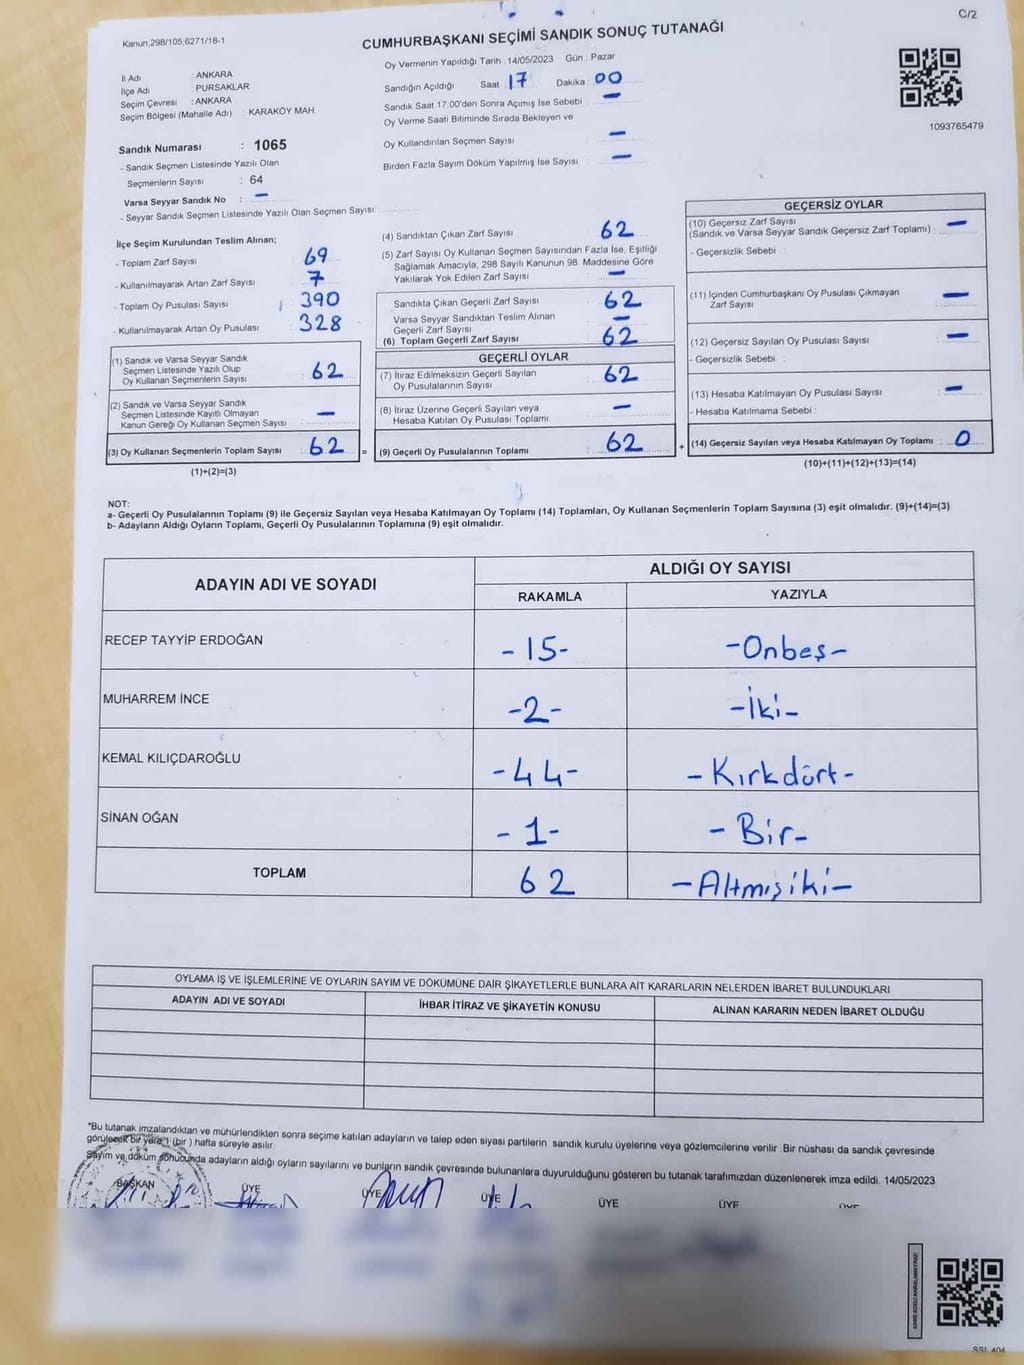 C/2
Kanun,298/105;6271/18-1
CUMHURBAŞKANI SEÇİMİ SANDIK SONUÇ TUTANAĞI
Oy Vermenin Yapıldığı Tarih : 14/05/2023 Gün : Pazar
İl Adı : ANKARA
İlçe Adı : PURSAKLAR
Seçim Çevresi : ANKARA
Seçim Bölgesi (Mahalle Adı) : KARAKÖY MAH.
Sandık Numarası : 1065
- Sandık Seçmen Listesinde Yazılı Olan
Seçmenlerin Sayısı : 64
Varsa Seyyar Sandık No : -
- Seyyar Sandık Seçmen Listesinde Yazılı Olan Seçmen Sayısı:
Sandığın Açıldığı Saat 17 Dakika 00
Sandık Saat 17:00'den Sonra Açımış İse Sebebi : -
Oy Verme Saati Bitiminde Sırada Bekleyen ve
Oy Kullandırılan Seçmen Sayısı : -
Birden Fazla Sayım Döküm Yapılmış İse Sayısı : -
1093765479
İlçe Seçim Kurulundan Teslim Alınan;
- Toplam Zarf Sayısı : 69
- Kullanılmayarak Artan Zarf Sayısı : 7
- Toplam Oy Pusulası Sayısı : 390
- Kullanılmayarak Artan Oy Pusulası : 328
(1) Sandık ve Varsa Seyyar Sandık
Seçmen Listesinde Yazılı Olup
Oy Kullanan Seçmenlerin Sayısı : 62
(2) Sandık ve Varsa Seyyar Sandık
Seçmen Listesinde Kayıtlı Olmayan
Kanun Gereği Oy Kullanan Seçmen Sayısı : -
(3) Oy Kullanan Seçmenlerin Toplam Sayısı : 62 =
(1)+(2)=(3)
(4) Sandıktan Çıkan Zarf Sayısı : 62
(5) Zarf Sayısı Oy Kullanan Seçmen Sayısından Fazla İse, Eşitliği
Sağlamak Amacıyla, 298 Sayılı Kanunun 98. Maddesine Göre
Yakılarak Yok Edilen Zarf Sayısı : -
Sandıkta Çıkan Geçerli Zarf Sayısı : 62
Varsa Seyyar Sandıktan Teslim Alınan
Geçerli Zarf Sayısı : -
(6) Toplam Geçerli Zarf Sayısı : 62
GEÇERLİ OYLAR
(7) İtiraz Edilmeksizin Geçerli Sayılan
Oy Pusulalarının Sayısı : 62
(8) İtiraz Üzerine Geçerli Sayılan veya
Hesaba Katılan Oy Pusulası Toplamı : -
(9) Geçerli Oy Pusulalarının Toplamı : 62 +
GEÇERSİZ OYLAR
(10) Geçersiz Zarf Sayısı
(Sandık ve Varsa Seyyar Sandık Geçersiz Zarf Toplamı) : -
- Geçersizlik Sebebi :
(11) İçinden Cumhurbaşkanı Oy Pusulası Çıkmayan
Zarf Sayısı : -
(12) Geçersiz Sayılan Oy Pusulası Sayısı : -
- Geçersizlik Sebebi :
(13) Hesaba Katılmayan Oy Pusulası Sayısı : -
- Hesaba Katılmama Sebebi :
(14) Geçersiz Sayılan veya Hesaba Katılmayan Oy Toplamı : 0
(10)+(11)+(12)+(13)=(14)
NOT:
a- Geçerli Oy Pusulalarının Toplamı (9) ile Geçersiz Sayılan veya Hesaba Katılmayan Oy Toplamı (14) Toplamları, Oy Kullanan Seçmenlerin Toplam Sayısına (3) eşit olmalıdır. (9)+(14)=(3)
b- Adayların Aldığı Oyların Toplamı, Geçerli Oy Pusulalarının Toplamına (9) eşit olmalıdır.
ADAYIN ADI VE SOYADI
ALDIĞI OY SAYISI
RAKAMLA YAZIYLA
RECEP TAYYİP ERDOĞAN -15- -Onbeş-
MUHARREM İNCE -2- -İki-
KEMAL KILIÇDAROĞLU -44- -Kırkdört-
SİNAN OĞAN -1- -Bir-
TOPLAM 62 -Altmışiki-
OYLAMA İŞ VE İŞLEMLERİNE VE OYLARIN SAYIM VE DÖKÜMÜNE DAİR ŞİKAYETLERLE BUNLARA AİT KARARLARIN NELERDEN İBARET BULUNDUKLARI
ADAYIN ADI VE SOYADI İHBAR İTİRAZ VE ŞİKAYETİN KONUSU ALINAN KARARIN NEDEN İBARET OLDUĞU
*Bu tutanak imzalandıktan ve mühürlendikten sonra seçime katılan adayların ve talep eden siyasi partilerin sandık kurulu üyelerine veya gözlemcilerine verilir. Bir nüshası da sandık çevresinde
görülecek bir yere 1 (bir ) hafta süreyle asılır.
Sayım ve döküm sonucunda adayların aldığı oyların sayılarını ve bunların sandık çevresinde bulunanlara duyurulduğunu gösteren bu tutanak tarafımızdan düzenlenerek imza edildi. 14/05/2023
BAŞKAN ÜYE ÜYE ÜYE ÜYE ÜYE ÜYE